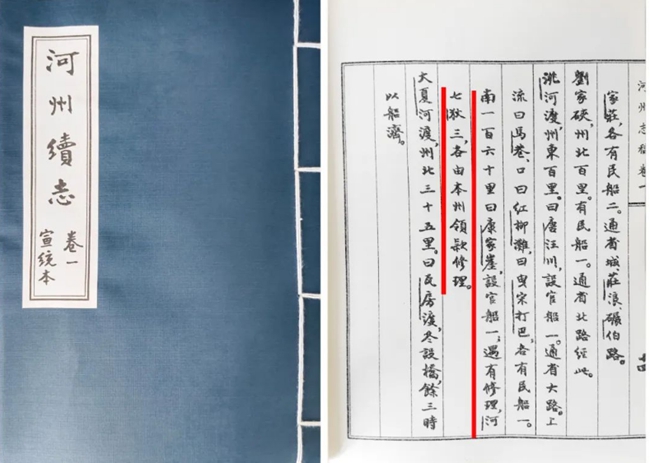 河州續志
卷一
宣統本
河州志稿卷一
家莊，各有民船二。通省城，莊浪、碾伯路。
劉家硤，州北百里。有民船一。通省北路經此。
洮河渡，州東百里。曰唐汪川，設官船一。通省大路。上
流曰馬巷、口曰紅柳灘，曰曳宋打巴，各有民船一。
南一百六十里曰康家崖，設官船一，遇有修理，河
七狄三，各由本州領款修理。
大夏河渡，州北三十五里。曰瓦房渡，冬設橋，餘三時
以船濟。